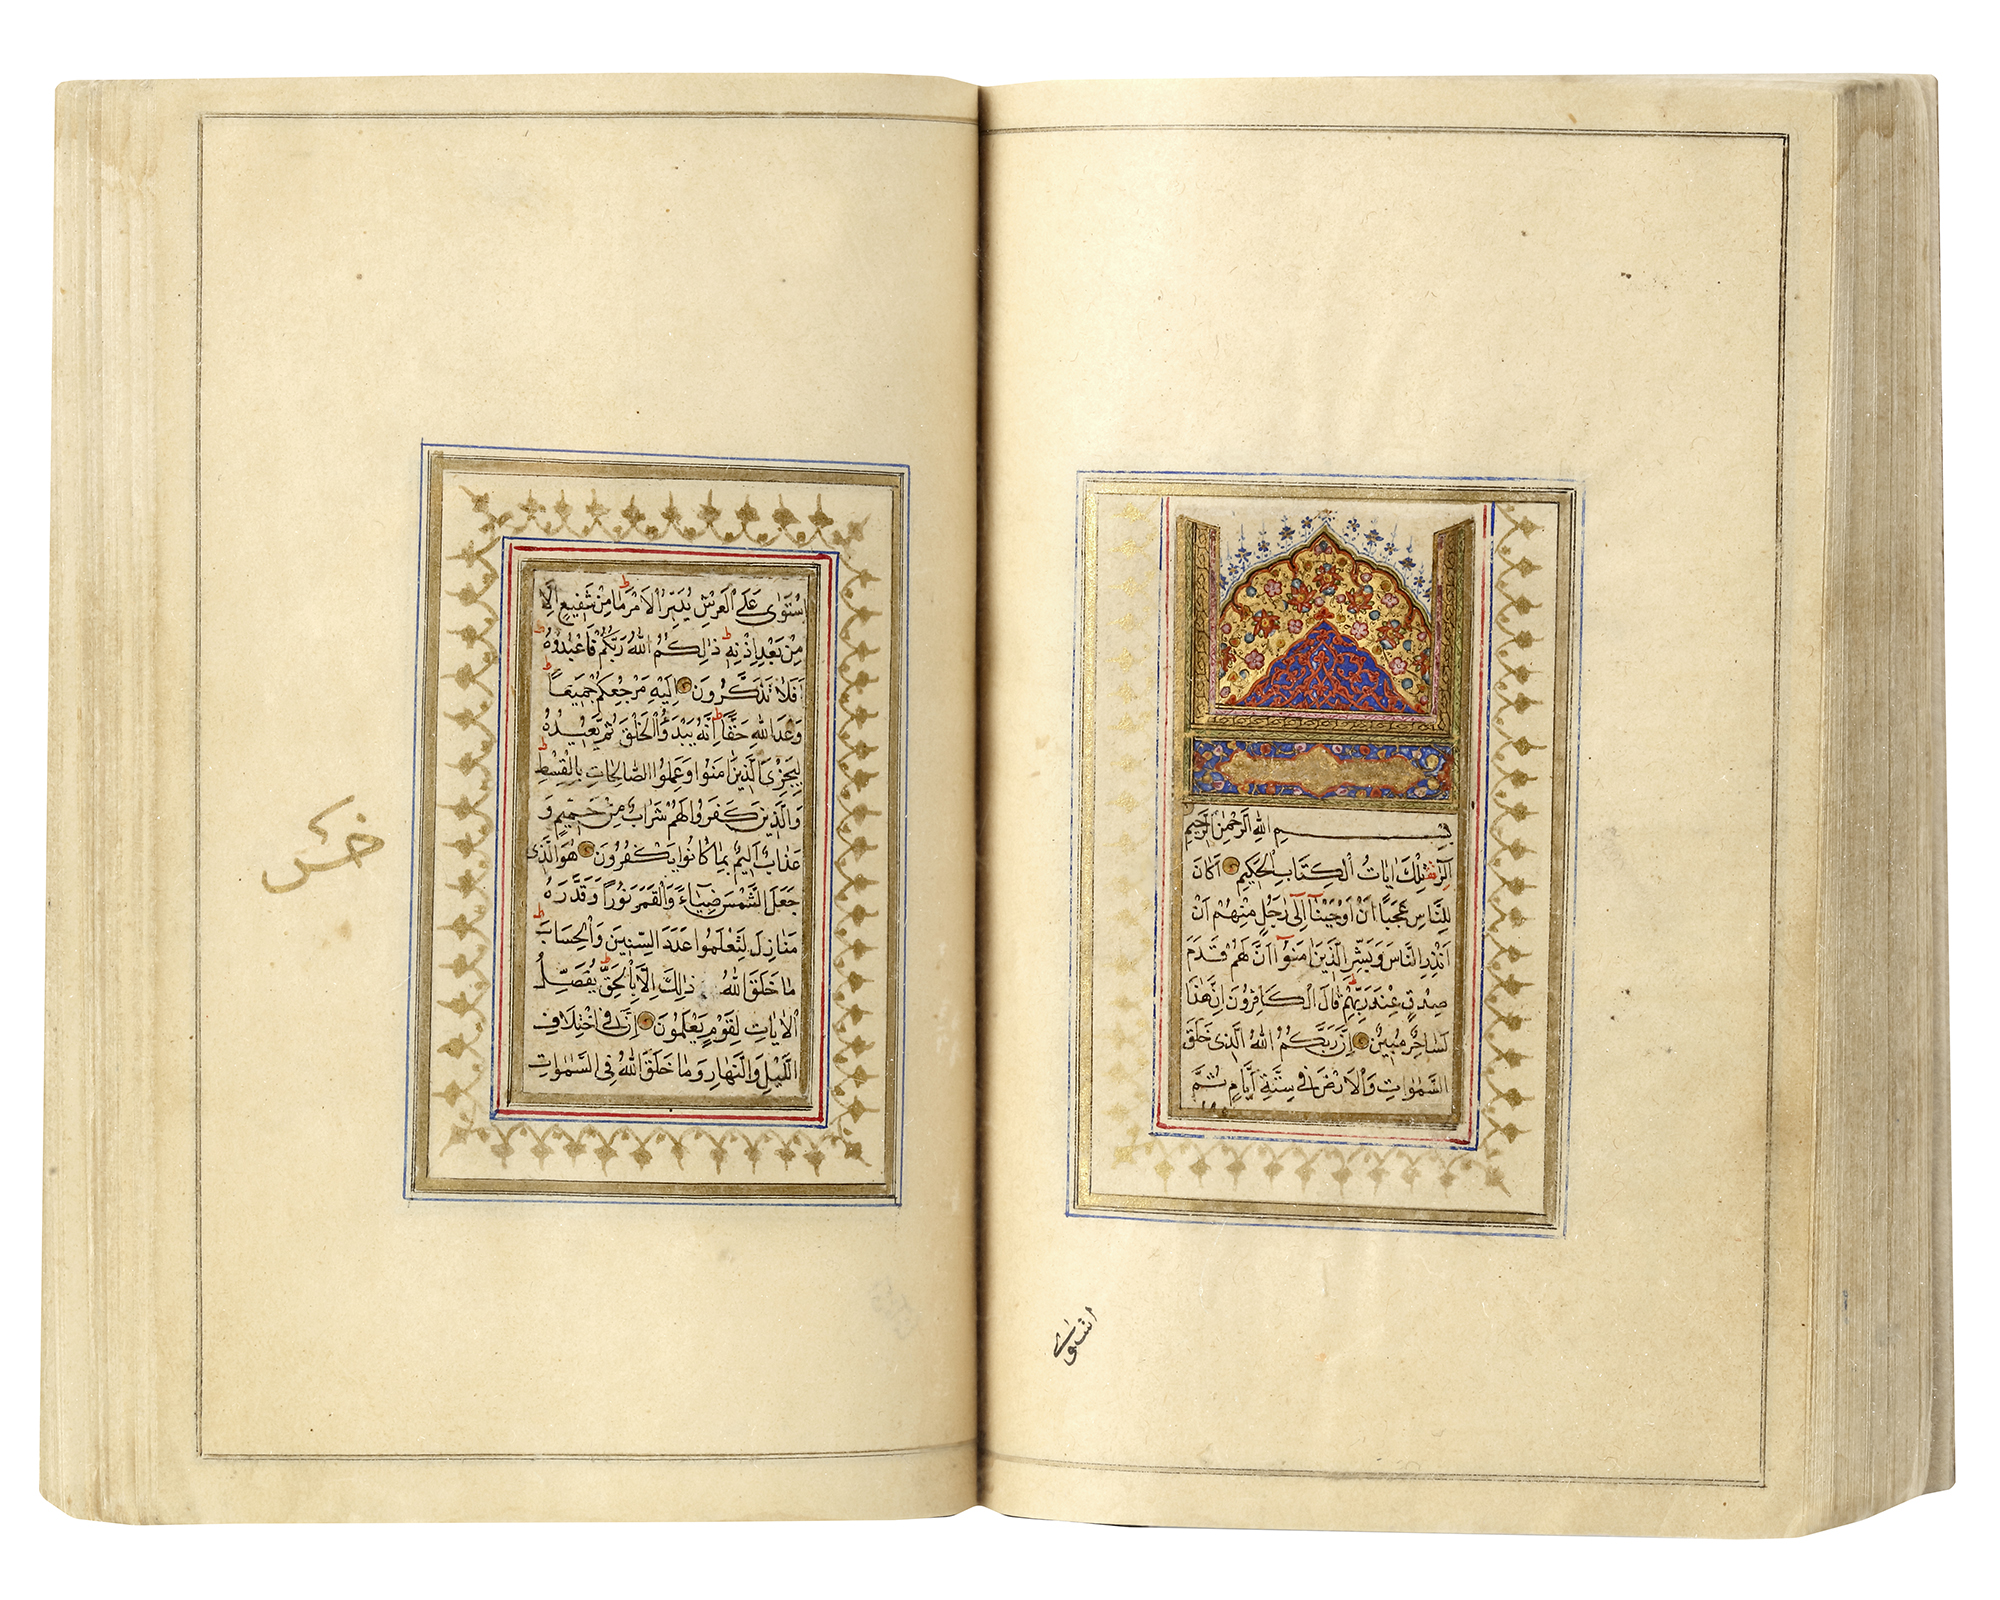 بِسْمِ اللهِ الرَّحْمٰنِ الرَّحِيمِ
الٓرٰ تِلْكَ اٰيَاتُ الْكِتَابِ الْحَكِيمِ اَكَانَ
لِلنَّاسِ عَجَبًا اَنْ اَوْحَيْنَآ اِلٰى رَجُلٍ مِنْهُمْ اَنْ
اَنْذِرِ النَّاسَ وَبَشِّرِ الَّذِينَ اٰمَنُوٓا اَنَّ لَهُمْ قَدَمَ
صِدْقٍ عِنْدَ رَبِّهِمْ قَالَ الْكَافِرُونَ اِنَّ هٰذَا
لَسَاحِرٌ مُبِينٌ اِنَّ رَبَّكُمُ اللهُ الَّذِى خَلَقَ
السَّمٰوَاتِ وَالْاَرْضَ فِى سِتَّةِ اَيَّامٍ ثُمَّ
استوى
سْتَوٰى عَلَى الْعَرْشِ يُدَبِّرُ الْاَمْرَ مَا مِنْ شَفِيعٍ اِلَّا
مِنْ بَعْدِ اِذْنِهِ ذٰلِكُمُ اللهُ رَبُّكُمْ فَاعْبُدُوهُ
اَفَلَا تَذَكَّرُونَ اِلَيْهِ مَرْجِعُكُمْ جَمِيعًا
وَعْدَ اللهِ حَقًّا اِنَّهُ يَبْدَؤُا الْخَلْقَ ثُمَّ يُعِيدُهُ
لِيَجْزِىَ الَّذِينَ اٰمَنُوا وَعَمِلُوا الصَّالِحَاتِ بِالْقِسْطِ
وَالَّذِينَ كَفَرُوا لَهُمْ شَرَابٌ مِنْ حَمِيمٍ وَ
عَذَابٌ اَلِيمٌ بِمَا كَانُوا يَكْفُرُونَ هُوَ الَّذِى
جَعَلَ الشَّمْسَ ضِيَآءً وَالْقَمَرَ نُورًا وَقَدَّرَهُ
مَنَازِلَ لِتَعْلَمُوا عَدَدَ السِّنِينَ وَالْحِسَابَ
مَا خَلَقَ اللهُ ذٰلِكَ اِلَّا بِالْحَقِّ يُفَصِّلُ
الْاٰيَاتِ لِقَوْمٍ يَعْلَمُونَ اِنَّ فِى اخْتِلَافِ
اللَّيْلِ وَالنَّهَارِ وَمَا خَلَقَ اللهُ فِى السَّمٰوَاتِ